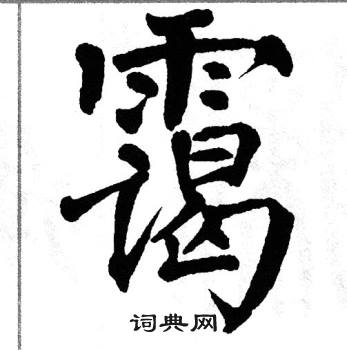 霭
词典网